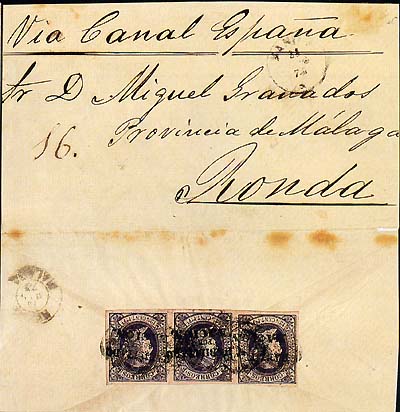 Via Canal España
Sr D Miguel Granados
16. Provincia de Málaga
Ronda